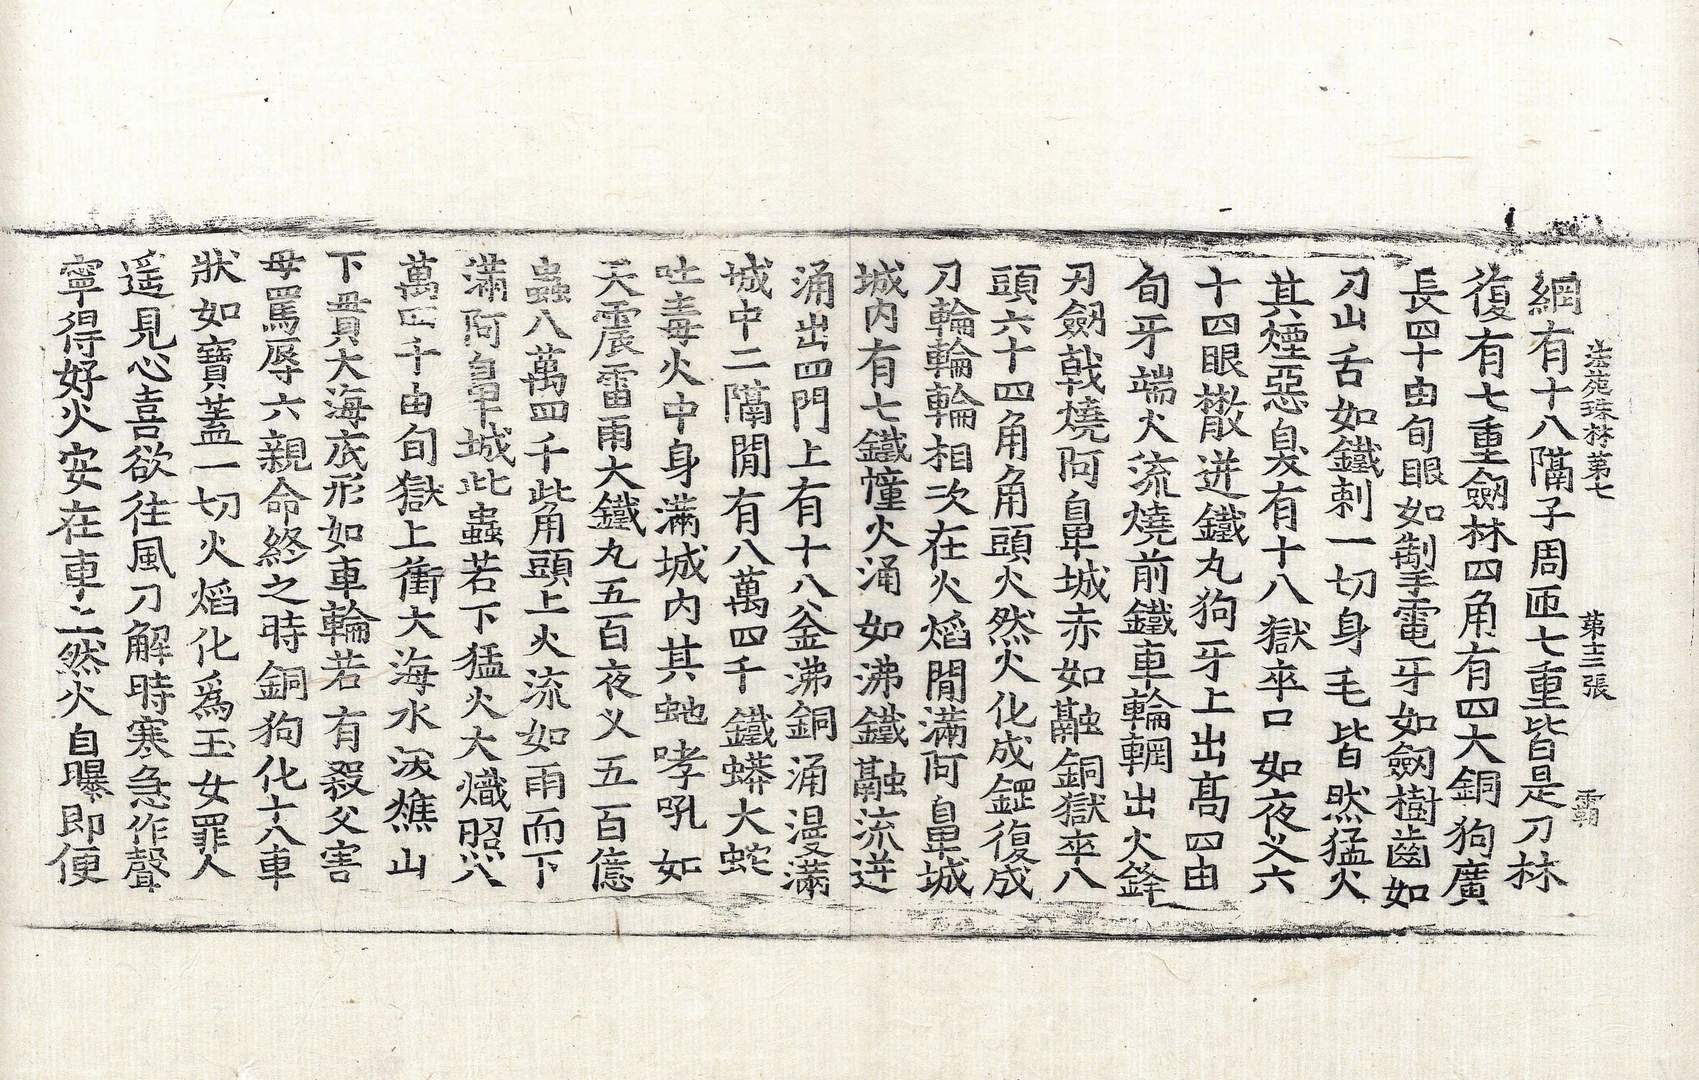 法苑珠林第七 第十三張 霸
網有十八隔子周匝七重皆是刀林
復有七重劒林四角有四大銅狗廣
長四十由旬眼如掣電牙如劒樹齒如
刀山舌如鐵刺一切身毛皆然猛火
其煙惡臭有十八獄卒口如夜叉六
十四眼散迸鐵丸狗牙上出高四由
旬牙端火流燒前鐵車輪輞出火鋒
刃劒戟燒阿鼻城赤如融銅獄卒八
頭六十四角角頭火然火化成鋼復成
刀輪輪輪相次在火焰閒滿阿鼻城
城內有七鐵幢火涌如沸鐵融流迸
涌出四門上有十八釜沸銅涌漫滿
城中二隔閒有八萬四千鐵蟒大蛇
吐毒火中身滿城內其虵哮吼如
天震雷雨大鐵丸五百夜叉五百億
蟲八萬四千此角頭上火流如雨而下
滿阿鼻城此蟲若下猛火大熾照八
萬四千由旬獄上衝大海水沃燋山
下貫大海底形如車輪若有殺父害
母罵辱六親命終之時銅狗化十八車
狀如寶蓋一切火焰化爲玉女罪人
遥見心喜欲往風刀解時寒急作聲
寧得好火安在車上然火自曝即便